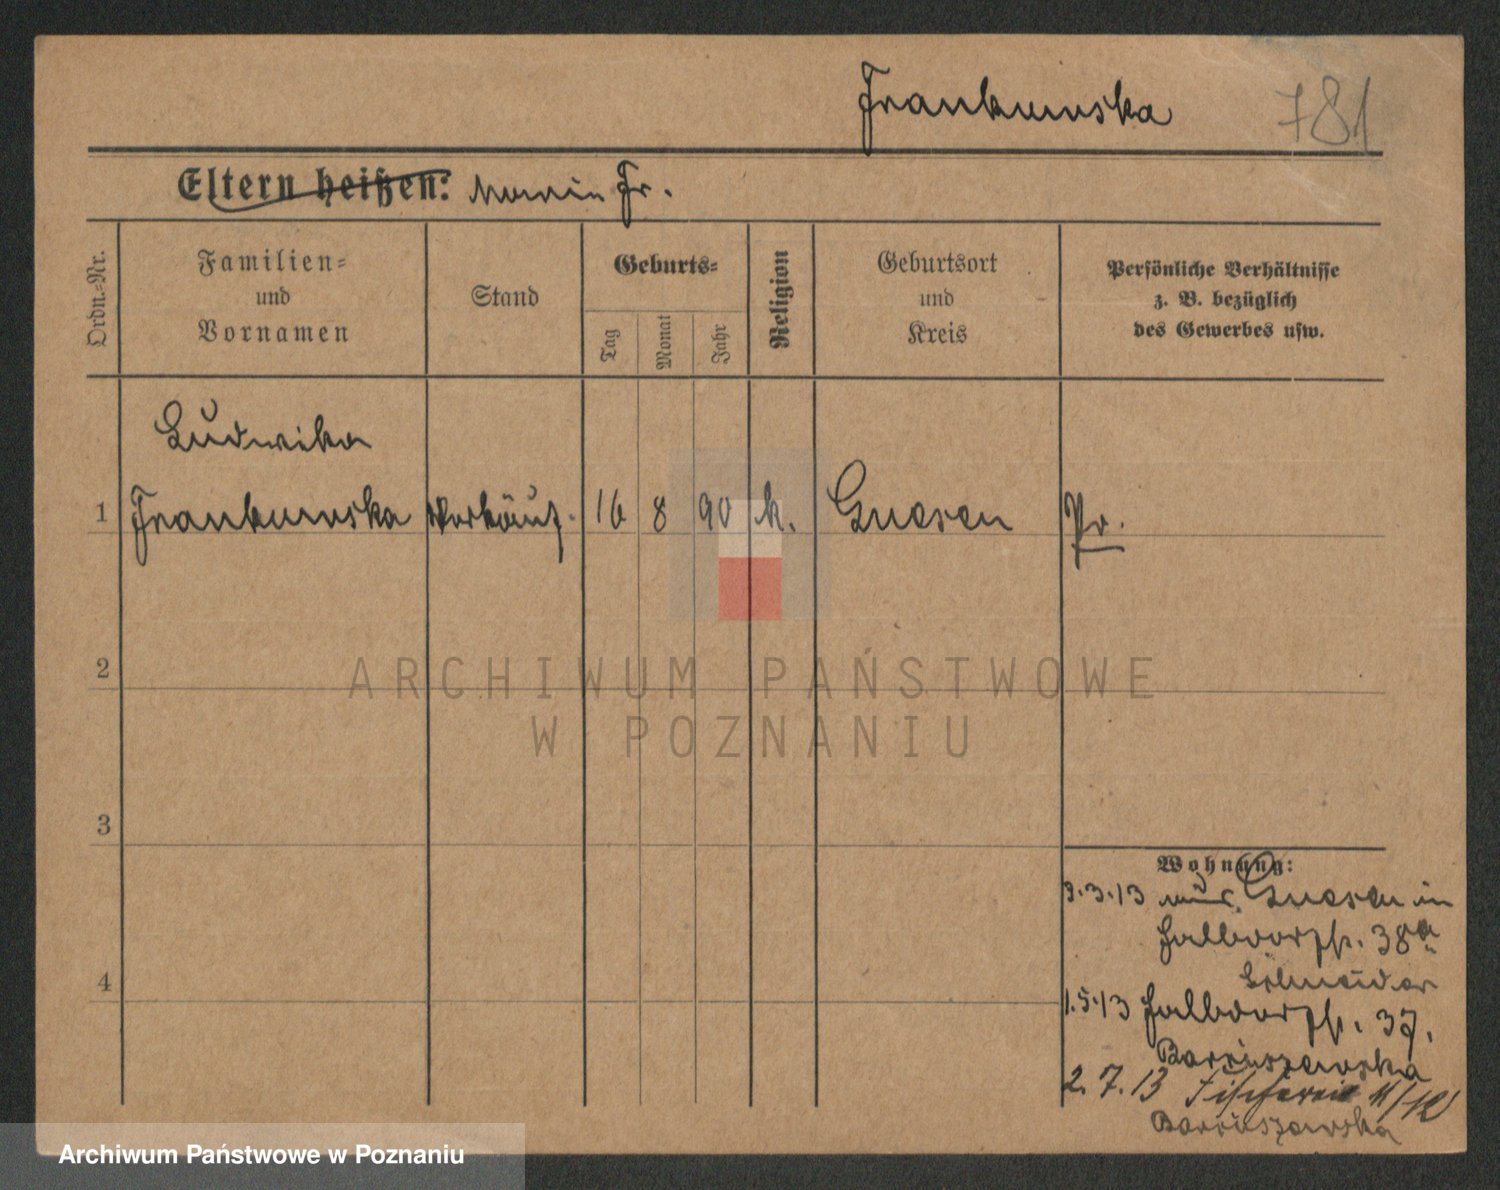 Frankowska
781
Eltern heißen: Fr.
Ordn.-Nr.
Familien-
und
Vornamen
Stand
Geburts-
Tag
Monat
Jahr
Religion
Geburtsort
und
Kreis
Persönliche Verhältnisse
z. B. bezüglich
des Gewerbes usw.
Ludwika
1 Frankowska Verkäuf. 16 8 90 k. Gnesen Pr.
2
3
4
ARCHIWUM PAŃSTWOWE
W POZNANIU
Wohnung:
3.3.13 Gnesen in
Halbdorfstr. 38a
Schneider
1.5.13 Halbdorfstr. 37.
2.7.13 Fischerei 11/12
Archiwum Państwowe w Poznaniu